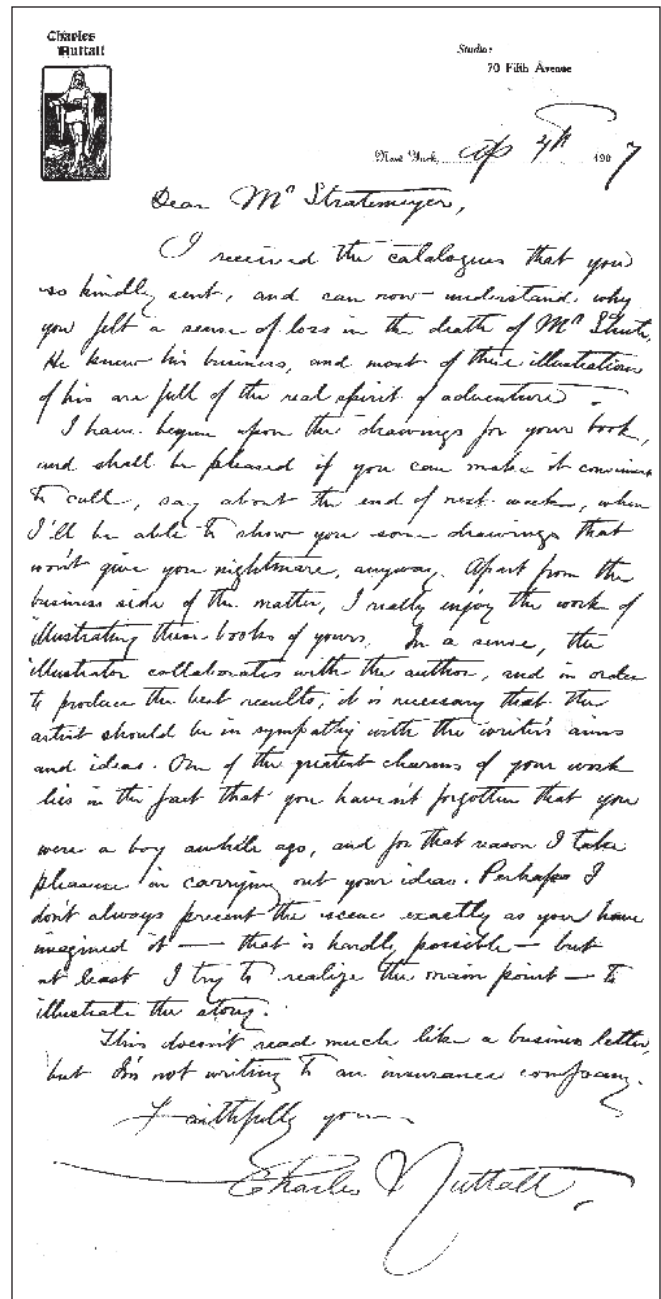 Charles
Nuttall
Studio:
70 Fifth Avenue
New York, Ap 4th 1907
Dear Mr Stratemeyer,
I received the catalogues that you
so kindly sent, and can now understand why
you felt a sense of loss in the death of Mr Shute.
He knew his business, and most of these illustrations
of his are full of the real spirit of adventure.
I have begun upon the drawings for your book,
and shall be pleased if you can make it convenient
to call, say about the end of next week, when
I'll be able to show you some drawings that
won't give you nightmare, anyway. Apart from the
business side of the matter, I really enjoy the work of
illustrating these books of yours. In a sense, the
illustrator collaborates with the author, and in order
to produce the best results, it is necessary that the
artist should be in sympathy with the writer's aims
and ideas. One of the greatest charms of your work
lies in the fact that you haven't forgotten that you
were a boy awhile ago, and for that reason I take
pleasure in carrying out your ideas. Perhaps I
don't always present the scene exactly as you have
imagined it — that is hardly possible — but
at least I try to realize the main point — to
illustrate the story.
This doesn't read much like a business letter,
but I'm not writing to an insurance company.
Faithfully yours
Charles Nuttall.